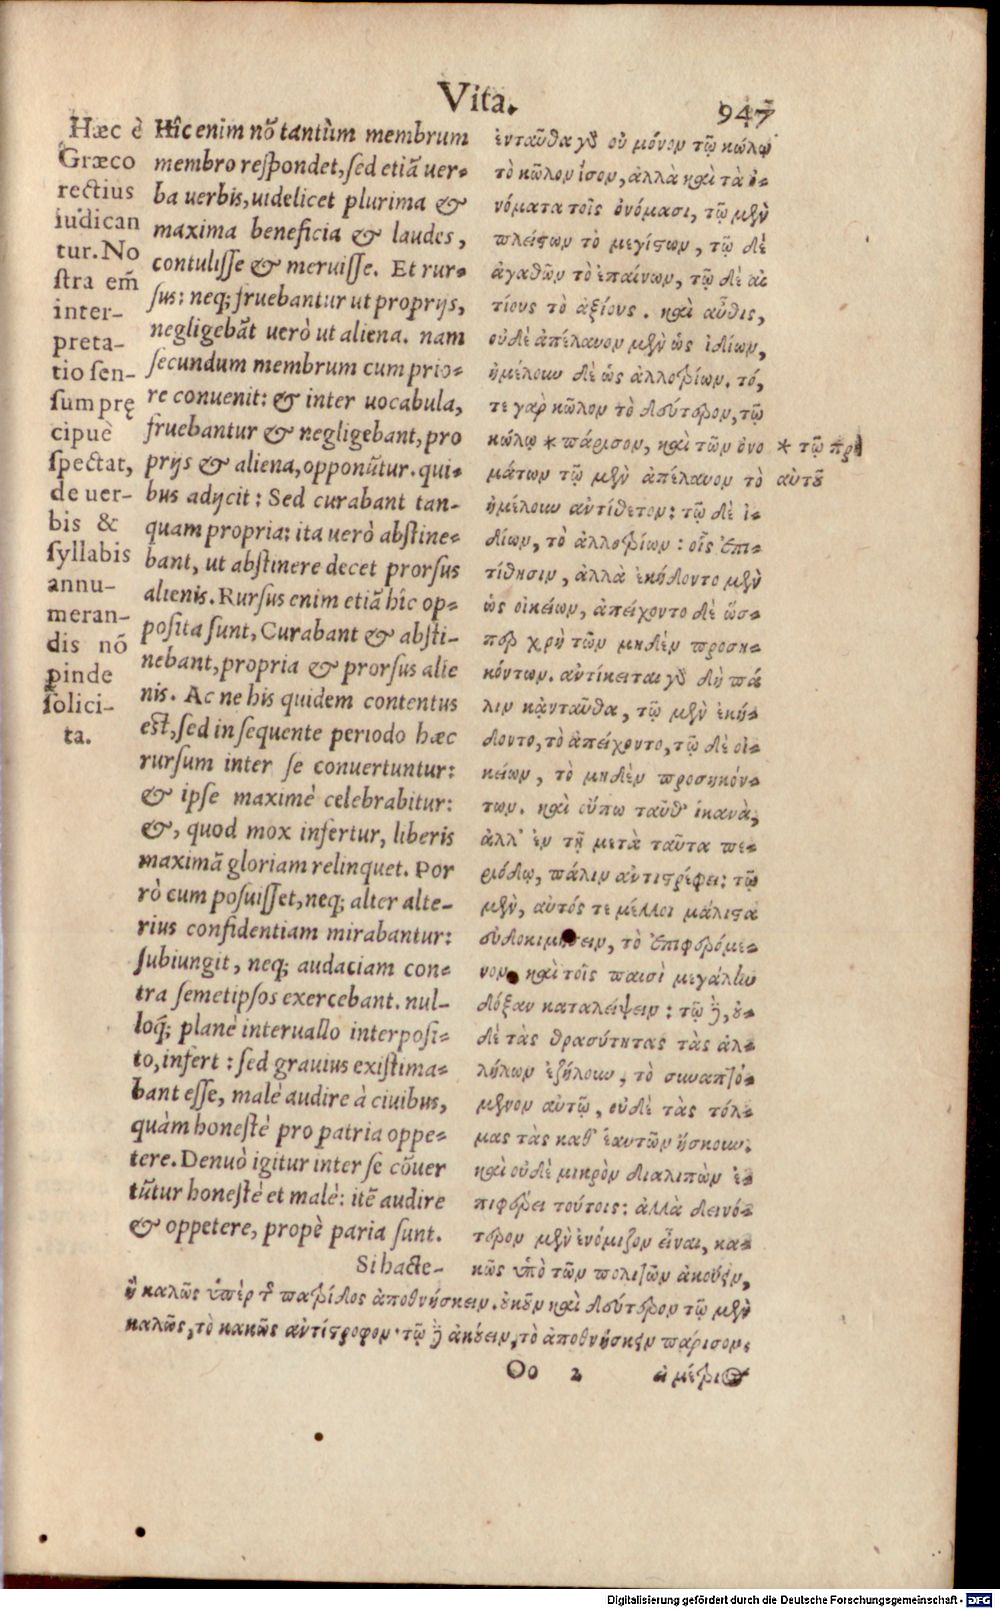 Vita.
947
Hæc è
Græco
rectius
iudican
tur. No
stra em̃
inter-
preta-
tio sen-
sum prę
cipuè
spectat,
de uer-
bis &
syllabis
annu-
meran-
dis nõ
pinde
solici-
ta.
Hîc enim nõ tantùm membrum
membro respondet, sed etiã uer-
ba uerbis, uidelicet plurima &
maxima beneficia & laudes,
contulisse & meruisse. Et rur-
sus: neq; fruebantur ut proprijs,
negligebãt uerò ut aliena. nam
secundum membrum cum prio-
re conuenit: & inter uocabula,
fruebantur & negligebant, pro
prijs & aliena, opponũtur. qui-
bus adijcit: Sed curabant tan-
quam propria: ita uerò abstine-
bant, ut abstinere decet prorsus
alienis. Rursus enim etiã hîc op-
posita sunt, Curabant & absti-
nebant, propria & prorsus alie
nis. Ac ne his quidem contentus
est, sed in sequente periodo hæc
rursum inter se conuertuntur:
& ipse maximè celebrabitur:
&, quod mox infertur, liberis
maximã gloriam relinquet. Por
rò cum posuisset, neq; alter alte-
rius confidentiam mirabantur:
subiungit, neq; audaciam con-
tra semetipsos exercebant. nul-
loq; planè interuallo interposi-
to, infert: sed grauius existima-
bant esse, malè audire à ciuibus,
quàm honestè pro patria oppe-
tere. Denuò igitur inter se cõuer
tũtur honestè et malè: itẽ audire
& oppetere, propè paria sunt.
Si hacte-
ἐνταῦθα γὰρ οὐ μόνον τῷ κώλῳ
τὸ κῶλον ἴσον, ἀλλὰ καὶ τὰ ὀ-
νόματα τοῖς ὀνόμασι, τῷ μὲν
πλείστων τὸ μεγίστων, τῷ δὲ
ἀγαθῶν τὸ ἐπαίνων, τῷ δὲ αἰ
τίους τὸ ἀξίους. καὶ αὖθις,
οὐδὲ ἀπέλαυον μὲν ὡς ἰδίων,
ἠμέλουν δὲ ὡς ἀλλοτρίων. τό,
τε γὰρ κῶλον τὸ δεύτερον, τῷ
κώλῳ * πάρισον, καὶ τῶν ὀνο
* τῷ πρὸ
αὐτοῦ
μάτων τῷ μὲν ἀπέλαυον τὸ
ἠμέλουν ἀντίθετον: τῷ δὲ ἰ-
δίων, τὸ ἀλλοτρίων: οἷς ἐπι-
τίθησιν, ἀλλὰ ἐκήδοντο μὲν
ὡς οἰκείων, ἀπείχοντο δὲ ὥσ-
περ χρὴ τῶν μηδὲν προση-
κόντων. ἀντίκειται γὰρ δὴ πά
λιν κᾀνταῦθα, τῷ μὲν ἐκή-
δοντο, τὸ ἀπείχοντο, τῷ δὲ οἰ-
κείων, τὸ μηδὲν προσηκόν-
των. καὶ οὔπω ταῦθ' ἱκανὰ,
ἀλλ' ἐν τῇ μετὰ ταῦτα πε-
ριόδῳ, πάλιν ἀντιστρέφει: τῷ
μὲν, αὐτός τε μέλλοι μάλιστα
εὐδοκιμήσειν, τὸ ἐπιφερόμε-
νον καὶ τοῖς παισὶ μεγάλην
δόξαν καταλείψειν: τῷ δὲ, οὐ-
δὲ τὰς θρασύτητας τὰς ἀλ-
λήλων ἐζήλουν, τὸ συναπτό-
μενον αὐτῷ, οὐδὲ τὰς τόλ-
μας τὰς καθ' ἑαυτῶν ἤσκουν.
καὶ οὐδὲ μικρὸν διαλιπὼν ἐ-
πιφέρει τούτοις: ἀλλὰ δεινό-
τερον μὲν ἐνόμιζον εἶναι, κα-
κῶς ὑπὸ τῶν πολιτῶν ἀκούειν,
ἢ καλῶς ὑπὲρ τῆς πατρίδος ἀποθνήσκειν. οὐκοῦν καὶ δεύτερον τῷ μὲν
καλῶς, τὸ κακῶς ἀντίστροφον· τῷ δὲ ἀκούειν, τὸ ἀποθνήσκειν πάρισον.
Oo 2
ἀμέτριος
Digitalisierung gefördert durch die Deutsche Forschungsgemeinschaft - DFG